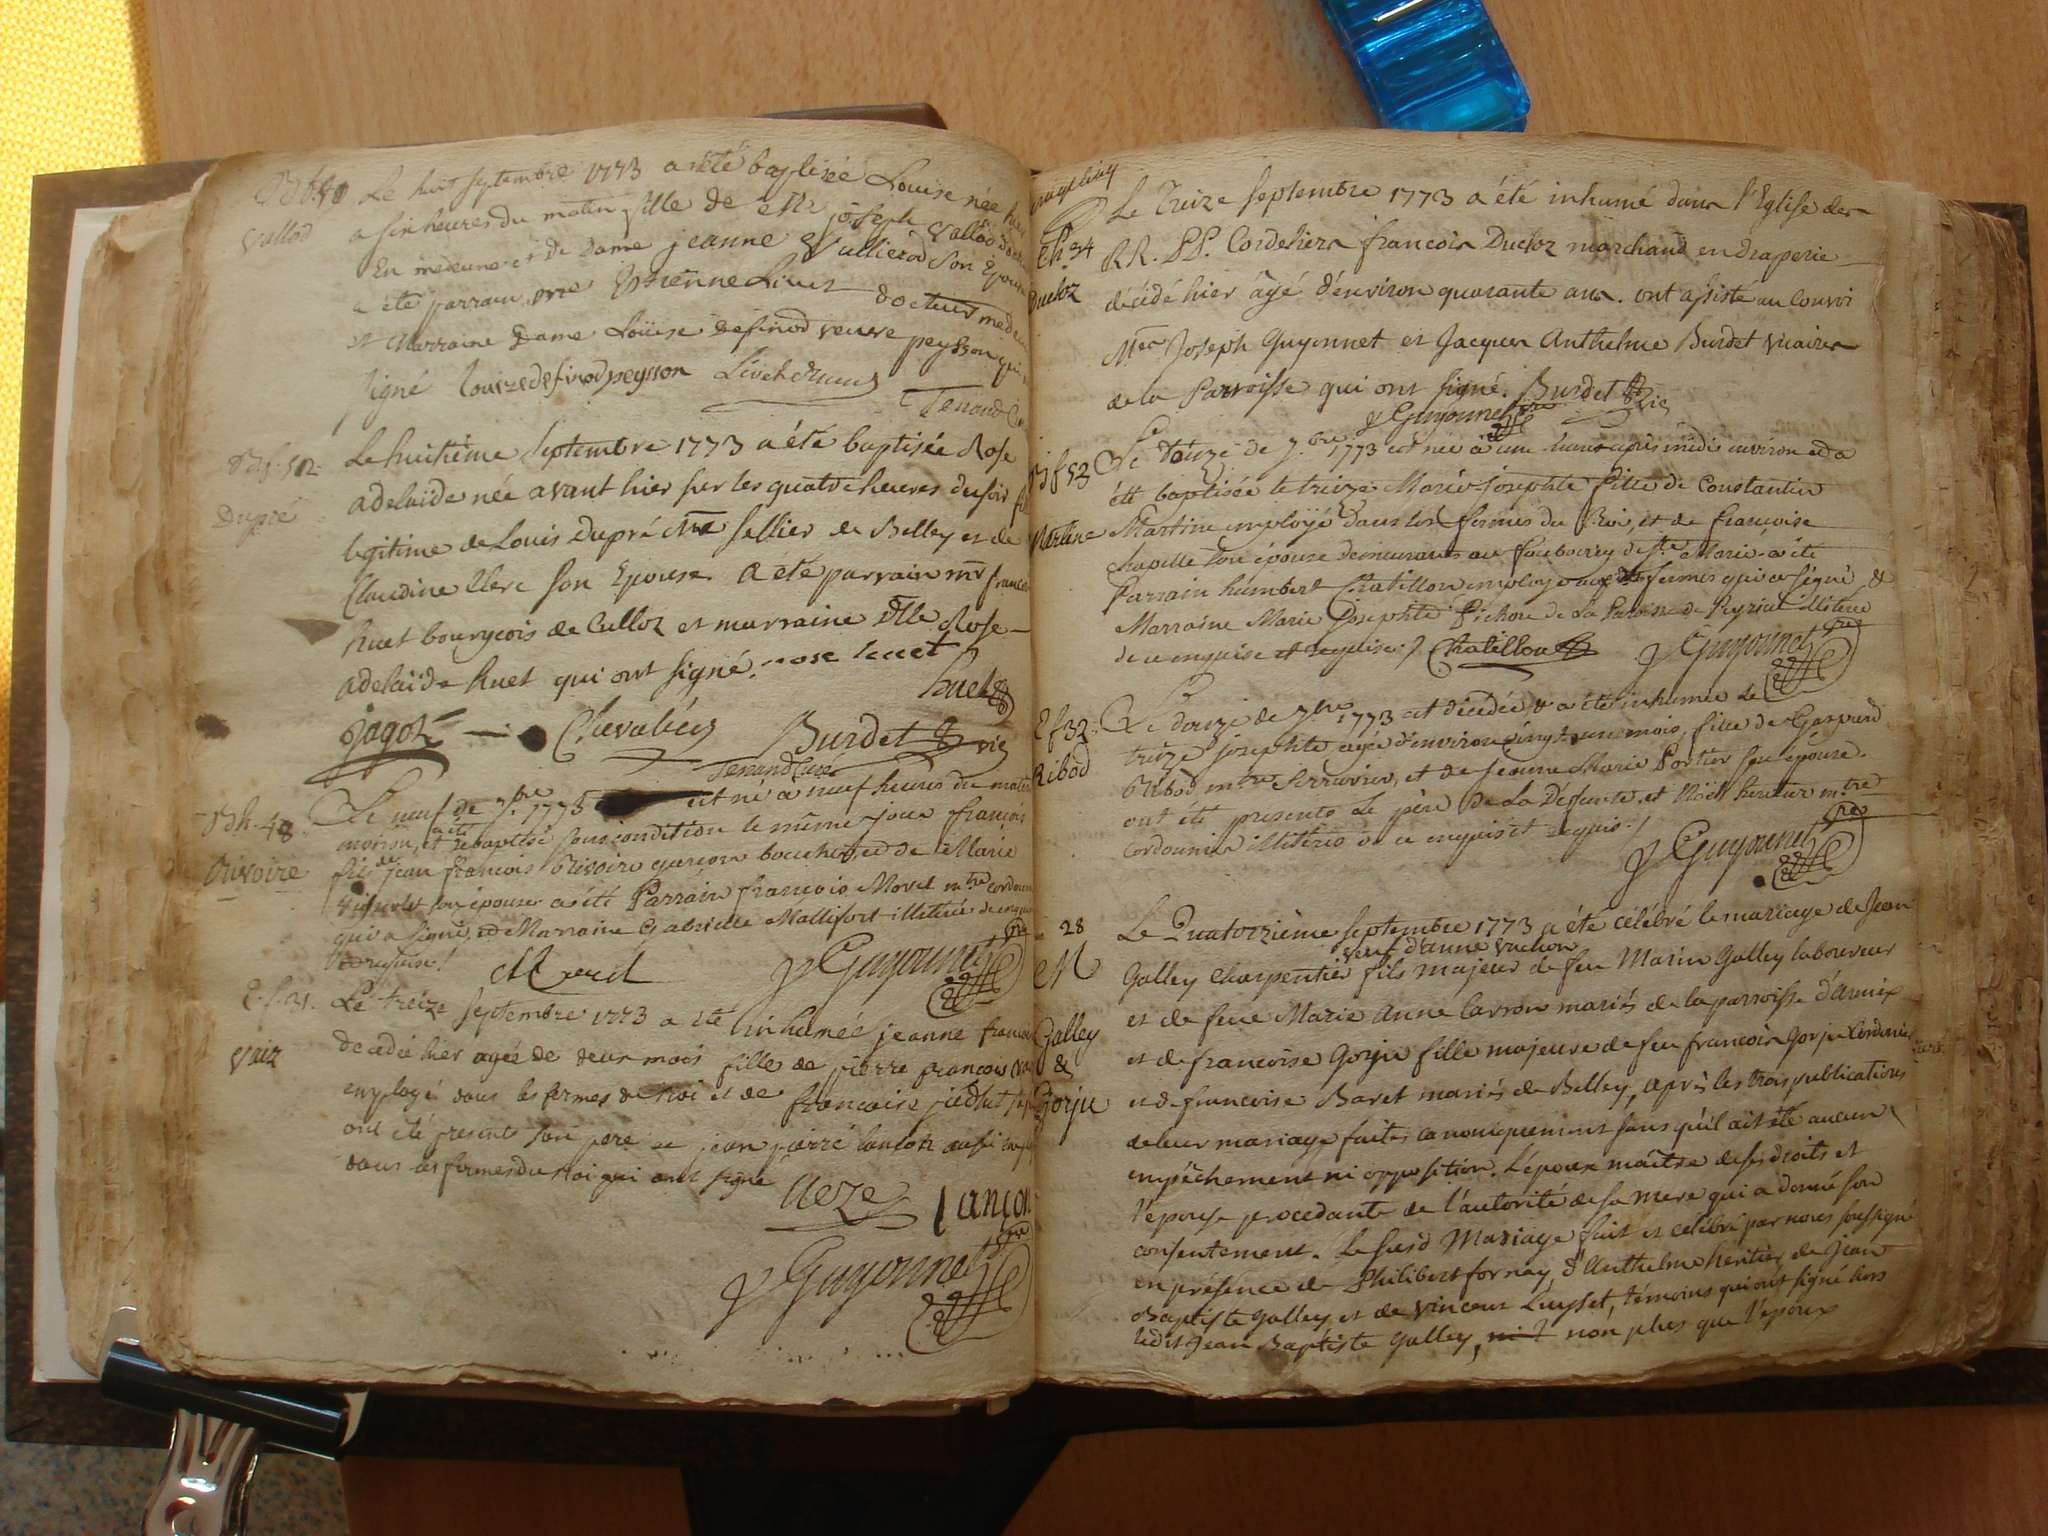 Vallod
Le huit septembre 1773 a été baptisée Louise née hier
a six heures du matin fille de Mr joseph Vallod
En medecine et de Dame jeanne Vullierod son Epouse
a été parrain Etienne Livet docteur
et Marraine Dame Louise definod veuve peysson qui
signé Louise definod peysson
Tenand
Le huitième Septembre 1773 a été baptisée Rose
Dupré
adelaïde née avant hier sur les quatre heures du soir
legitime de Louis Dupré Me sellier de Belley et de
Claudine Clerc son Epouse. a été parrain mr
huet bourgeois de Culloz et marraine Dlle Rose
adelaïde huet qui ont signé. rose huet
huet
jagot Chevalier Burdet vic
Tenand Curé
Le neuf de 7.bre 1773 est né a neuf heures du matin
environ, et a été rebaptisé sous condition le même jour françois
Rivoire
fils de jean françois Rivoire garçon boucher, et de Marie
son épouse a été Parrain françois Moret mtre
qui a signé, et Marraine Gabrielle Mallifort illiterée
J Guyonnet ptre
E. f. 31.
Le treize septembre 1773 a été inhumée jeanne
decedée hier agée de deux mois fille de pierre françois
employé dans les fermes du Roi et de françoise
ont été presents son pere et jean pierre lançon aussi
dans les fermes du Roi qui ont signé
lançon
J Guyonnet ptre
Le Treize Septembre 1773 a été inhumé dans l'Eglise des
RR. PP. Cordeliers françois Ducloz marchand en draperie
Ducloz
décédé hier âgé d'environ quarante ans. ont assisté au Convoi
Mrs Joseph Guyonnet et Jacques Anthelme Burdet vicaires
de la Parroisse qui ont signé. Burdet vic
J Guyonnet ptre
Le douze de 7.bre 1773 est née à une heure après midi environ et a
été baptisée le treize Marie josephte fille de Constantin
Martine
Martine employé dans les fermes du Roi, et de françoise
chapelle son épouse demeurants au fauboug de Ste Marie. a été
Parrain humbert Chatillon employé aux dites fermes qui a signé, &
Marraine Marie Josephte Pichon de la Paroisse de Peyrieu illiterée
de ce enquise et requise. / Chatillon J Guyonnet ptre
E f 32
Le douze de 7bre 1773 est décédée, & a été inhumée le
treize josephte agée d'environ vingt un mois, fille de Gaspard
Ribod
Ribod mtre serrurier, et de jeanne Marie Portier son épouse.
ont été presents le père de la Défunte, et Noël heritier mtre
Cordonnier illiterés de ce enquis et requis. /
J Guyonnet ptre
28
Le Quatorzième septembre 1773 a été célébré le mariage de Jean
veuf d'anne vuchon
M
Galley Charpentier fils majeur de feu Marin Galley laboureur
et de feue Marie Anne Carron mariés de la parroisse d'Amix
Galley
&
Gorju
et de francoise Gorju fille majeure de feu francois Gorju Cordonnier
et de francoise Baret mariés de Belley, après les trois publications
de leur mariage faites canoniquement sans qu'il ait été aucun
empêchement ni opposition. L'époux maître de ses droits et
l'epouse procedante de l'autorité de sa mere qui a donné son
consentement. Le susd Mariage fait et célébré par nous soussigné
en présence de Philibert fornay, d'Anthelme heritier, de Jean
Baptiste Galley, et de Vincent Luyset, témoins qui ont signé hors
ledit Jean Baptiste Galley, non plus que l'epoux